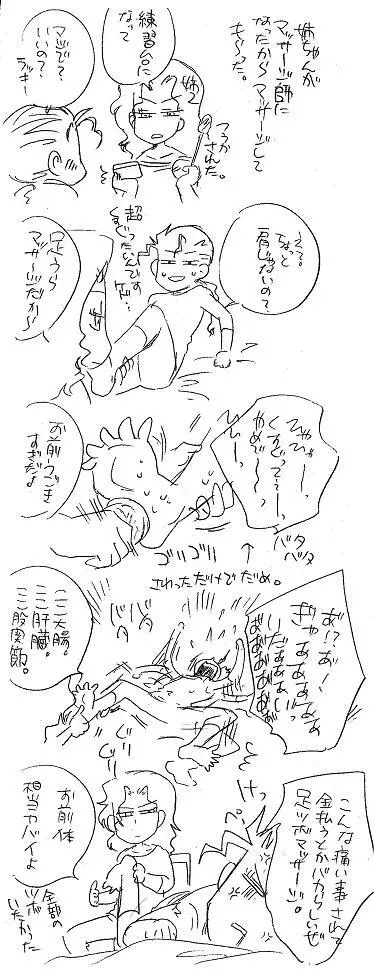 姉ちゃんが
マッサージ師に
なったからマッサージして
もらった。
姉→
練習台に
なって
マジで?
いいの?
ラッキー
つうか
された。
えて。
ちょっと
肩じゃないの?
超
くすぐったいんです
けど…
足うら
マッサージだから
ひゃひゃーー、
くすぐってぇーー、
やめでーー、
ひぃーー、
お前うごき
すぎだよ
バタ
バタ
ゴリゴリ
↑
さわっただけでだめ。
あ!?あ!
ぎゃあああああ
いだぁああい
ああああああ
バタ
バタ
ここ大腸。
ここ肝臓。
ここ股関節。
こんな痛い事されて
金払うとかバカらしいぜ
足ツボマッサージ。
けっ
お前体
相当ヤバイよ
全部の
ツボ
いたかった